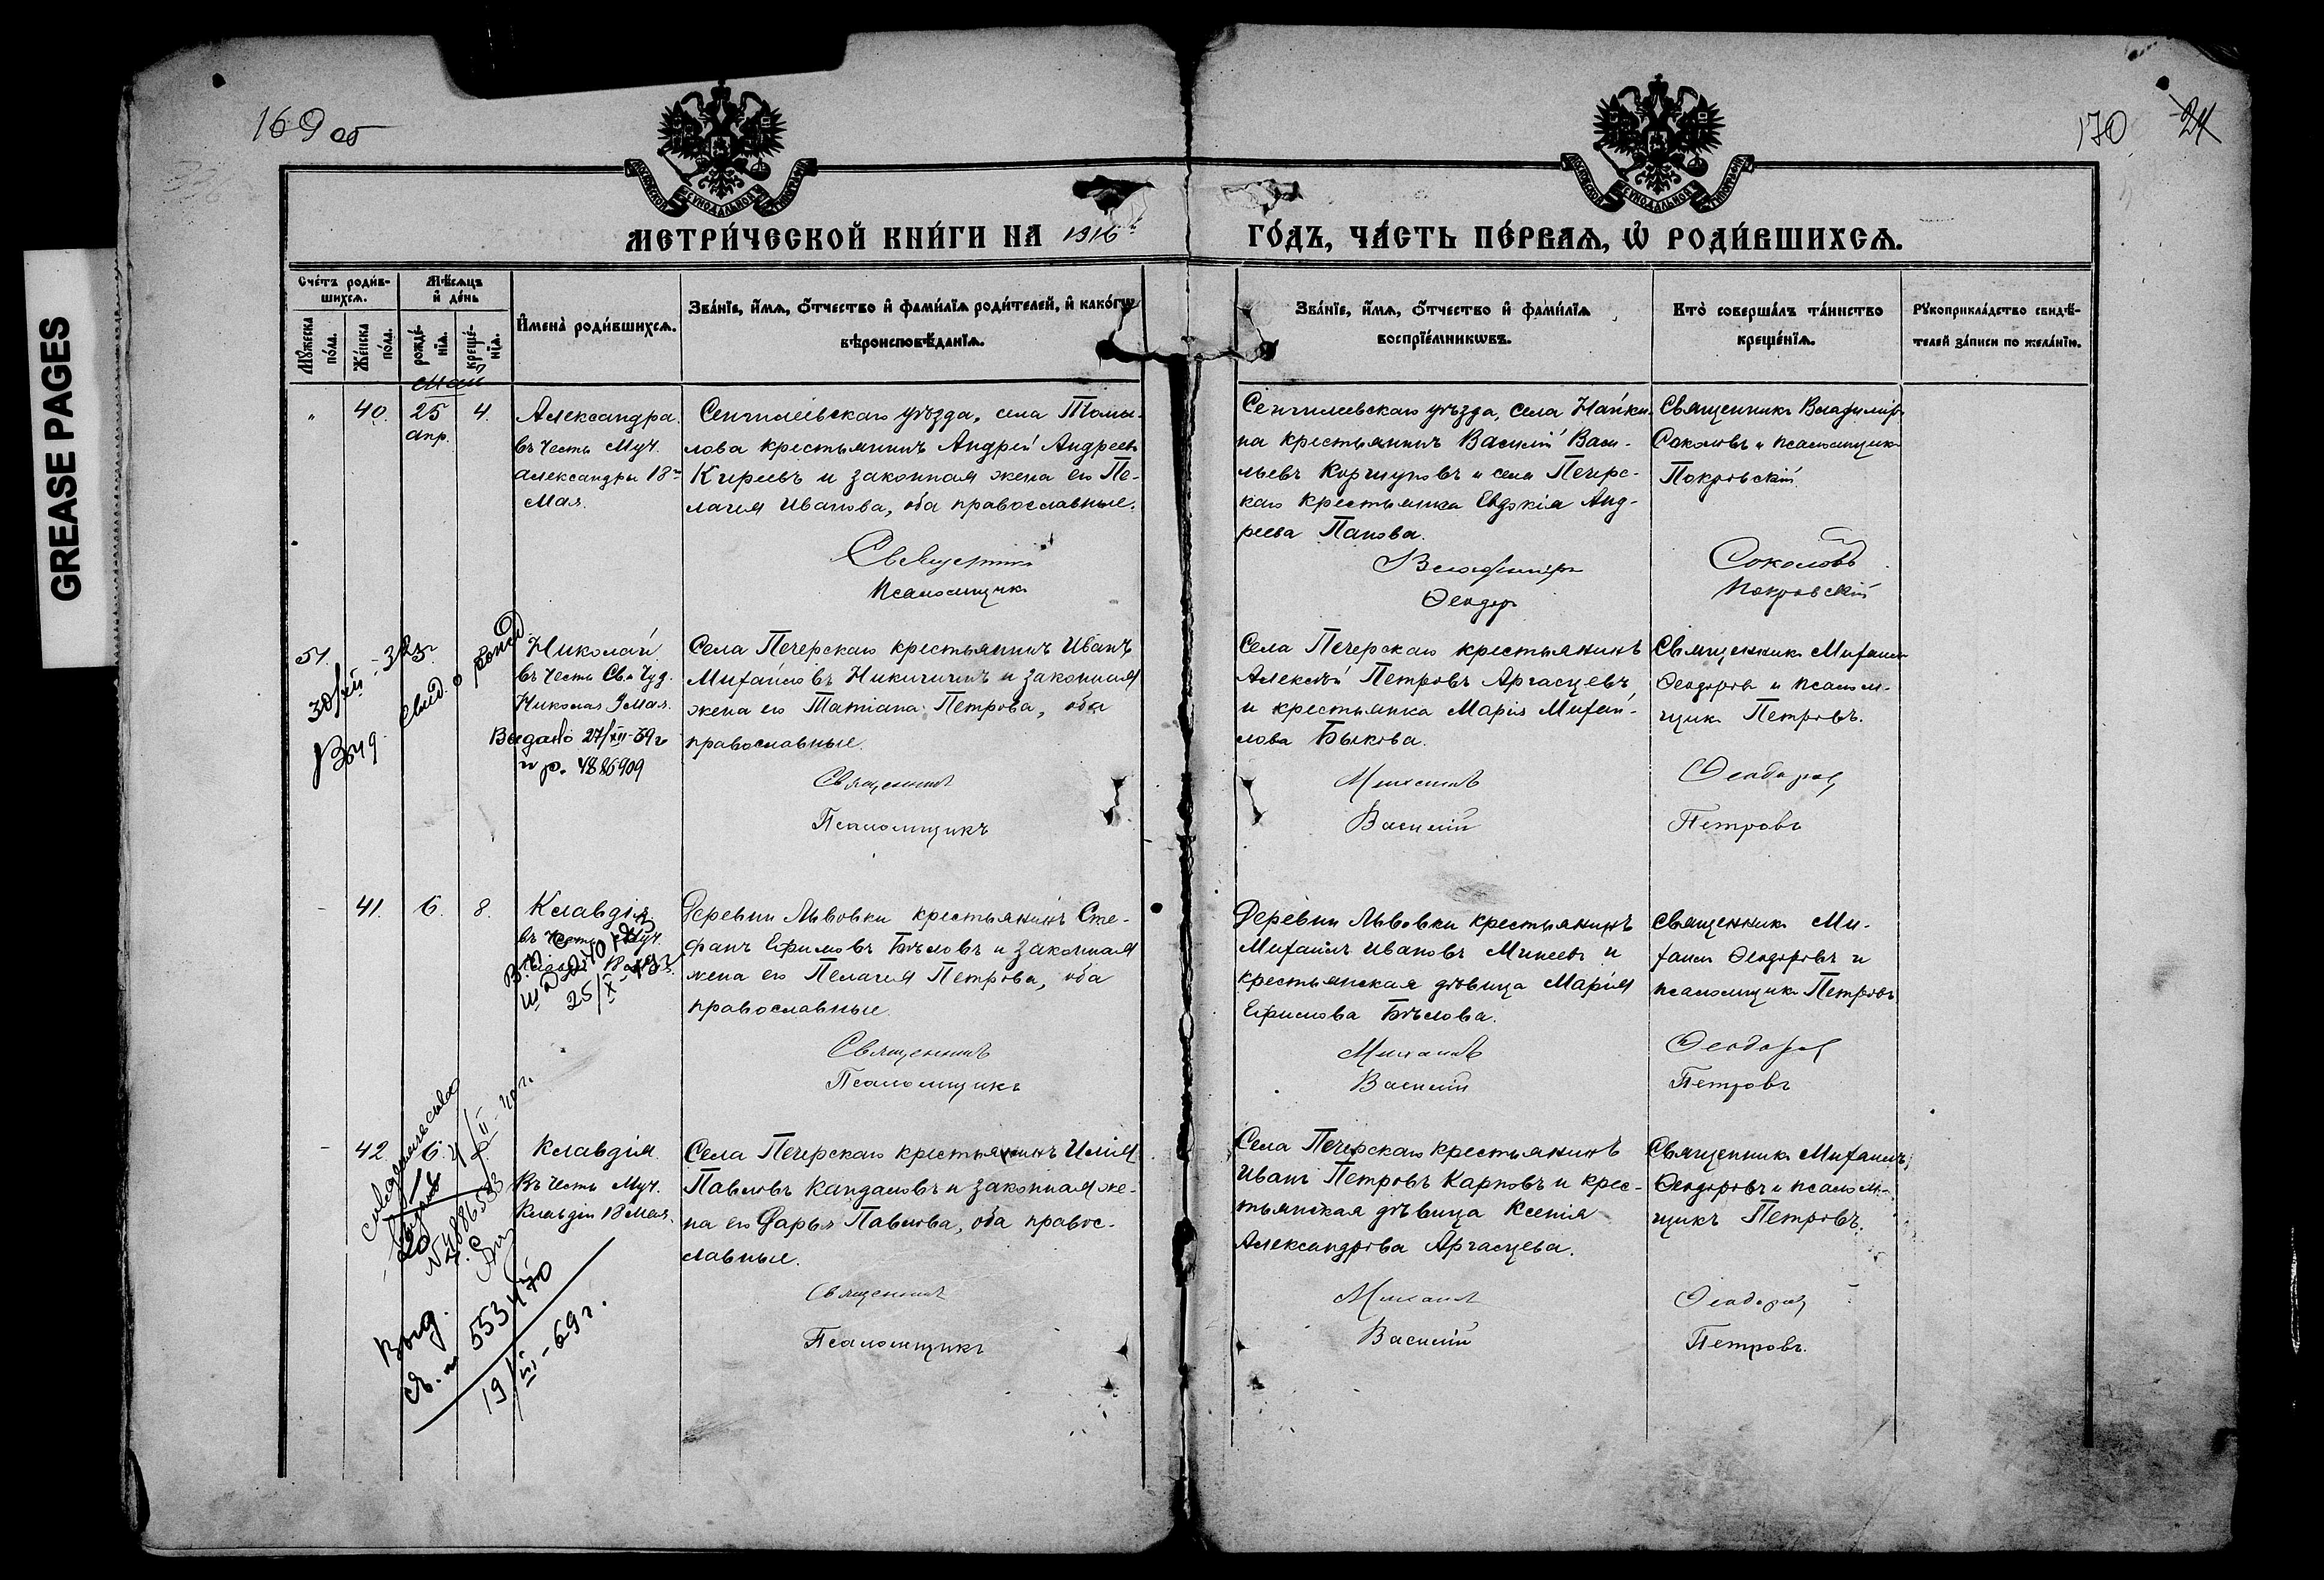 GREASE PAGES
169 об
170
24
МОСКОВСКОЙ СѴНОДАЛЬНОЙ ТИПОГРАФІИ
МОСКОВСКОЙ СѴНОДАЛЬНОЙ ТИПОГРАФІИ
МЕТРИ́ЧЕСКОЙ КНИ́ГИ НА 1916
ГО́ДЪ, ЧА́СТЬ ПЕ́РВАѦ, Ѡ҆ РОДИ́ВШИХСѦ.
Сче́тъ роди́в-
шихсѧ.
Мꙋ́жеска
по́ла.
Же́нска
по́ла.
Мѣ́сѧцъ
и҆ де́нь
рожде́-
нїѧ.
креще́-
нїѧ.
И҆мена̀ роди́вшихсѧ.
Зва́нїе, и҆́мѧ, ѻ҆́тчество и҆ фами́лїѧ роди́телей, и҆ како́гѡ
вѣроисповѣ́данїѧ.
Зва́нїе, и҆́мѧ, ѻ҆́тчество и҆ фами́лїѧ
воспрїе́мникѡвъ.
Кто̀ соверша́лъ та́инство
креще́нїѧ.
Рꙋкоприкла́дство свидѣ́-
телей за́писи по жела́нїю.
Май
" 40. 25 4.
апр.
Александра.
въ честь Муч.
Александры 18го
Мая.
Сенгилеевскаго уѣзда, села Томы-
лова крестьянинъ Андрей Андреевъ
Киреевъ и законная жена его Пе-
лагея Иванова, оба православные.
Священникъ
Псаломщикъ
Сенгилеевскаго уѣзда, села Найки-
на крестьянинъ Василій Васи-
льевъ Коршуновъ и села Печерс-
каго крестьянка Евдокія Анд-
реева Панова.
Владиміръ
Ѳеодоръ
Священникъ Владиміръ
Соколовъ и псаломщикъ
Покровскій.
Соколовъ
Покровскій
51. 3
Николай
въ честь Св. Чуд.
Николая 9 Мая.
Выдано 27/XII-39г
Выд. свид. о рожд
30/XII
Села Печерскаго крестьянинъ Иванъ
Михайловъ Никитинъ и законная
жена его Татіана Петрова, оба
православные.
Священникъ
Псаломщикъ
Села Печерскаго крестьянинъ
Алексѣй Петровъ Аргасцевъ
и крестьянка Марія Михай-
лова Быкова.
Михаилъ
Василій
Священникъ Михаилъ
Ѳеодоровъ и псалом-
щикъ Петровъ.
Ѳеодоровъ
Петровъ
- 41. 6. 8.
Клавдія
въ честь Муч.
25/X
Деревни Львовки крестьянинъ Сте-
фанъ Ефимовъ Бѣловъ и законная
жена его Пелагея Петрова, оба
православные.
Священникъ
Псаломщикъ
Деревни Львовки крестьянинъ
Михаилъ Ивановъ Минеевъ и
крестьянская дѣвица Марія
Ефимова Бѣлова.
Михаилъ
Василій
Священникъ Ми-
хаилъ Ѳеодоровъ и
псаломщикъ Петровъ.
Ѳеодоровъ
Петровъ
- 42 6.
Клавдія
Въ честь Муч.
Клавдіи 18 Мая.
свидетельство
выдано
№ 4886583
Выд.
19/III-69г.
Села Печерскаго крестьянинъ Илія
Павловъ Кандаловъ и законная же-
на его Дарья Павлова, оба правос-
лавные.
Священникъ
Псаломщикъ
Села Печерскаго крестьянинъ
Иванъ Петровъ Карповъ и крес-
тьянская дѣвица Ксенія
Александрова Аргасцева.
Михаилъ
Василій
Священникъ Михаилъ
Ѳеодоровъ и псалом-
щикъ Петровъ.
Ѳеодоровъ
Петровъ.